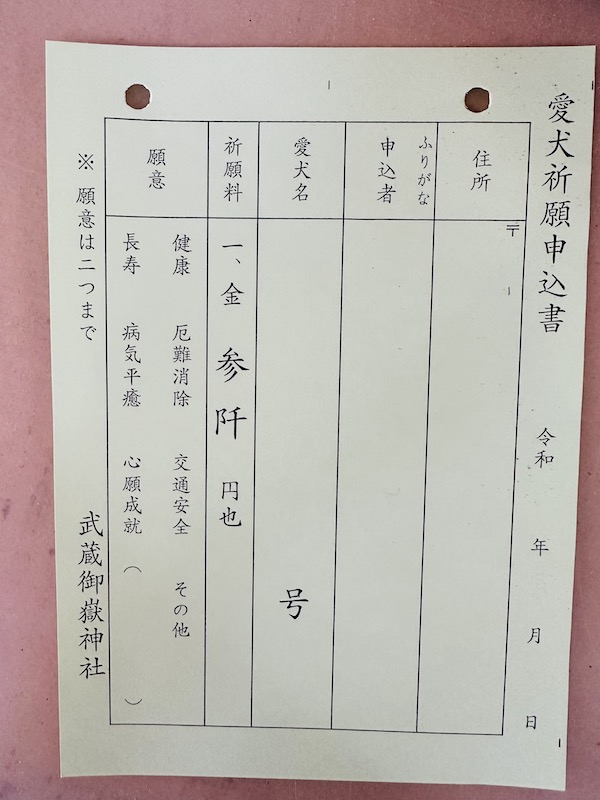 愛犬祈願申込書
令和 年 月 日
住所
〒
ふりがな
申込者
愛犬名
号
祈願料
一、金 参阡 円也
願意
健康 厄難消除 交通安全 その他
長寿 病気平癒 心願成就 （ ）
※ 願意は二つまで
武蔵御嶽神社